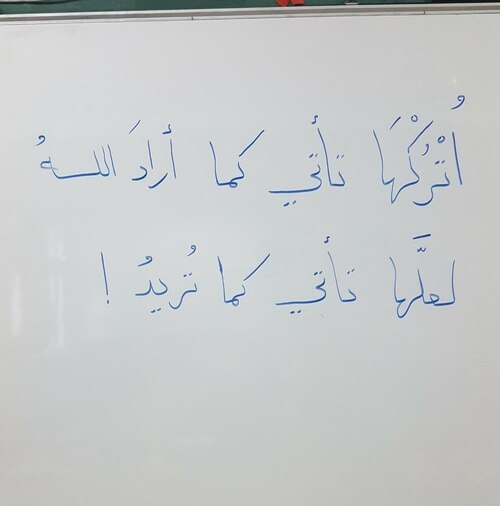 اُتْرُكْهَا تأتي كما أرادَ اللهُ
لعلَّها تأتي كما تُريدُ !